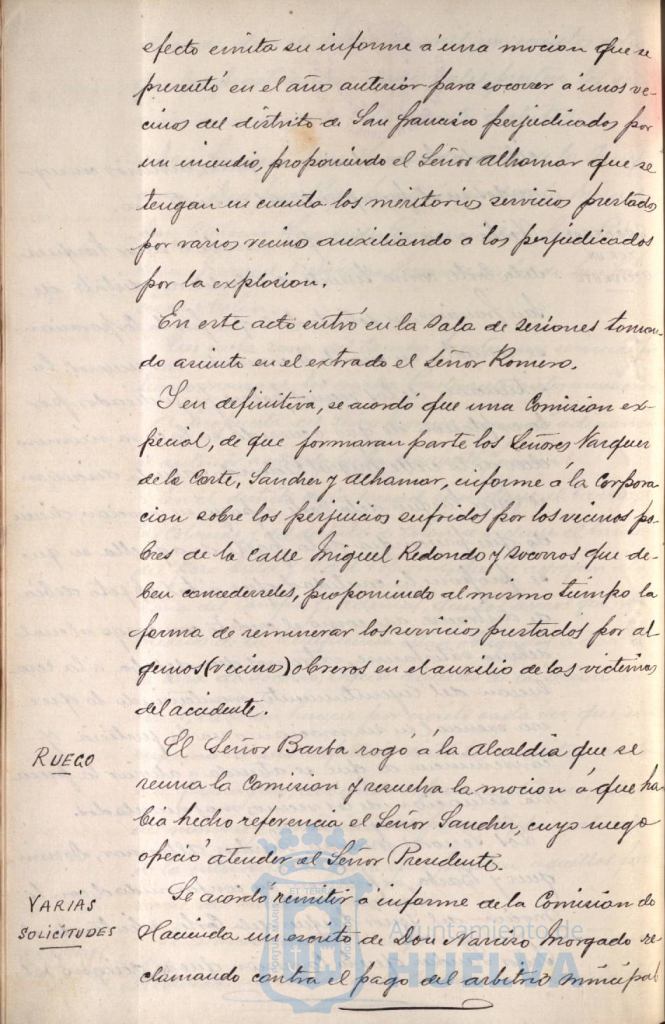 efecto emita su informe á una mocion que se
presentó en el año anterior para socorrer á unos ve-
cinos del distrito de San francisco perjudicados por
un incendio, proponiendo el Señor Alhamar que se
tengan en cuenta los meritorios servicios prestados
por varios vecino auxiliando á los perjudicados
por la explosion.
En este acto entró en la sala de sesiones toman-
do asiento en el extrado el Señor Romero.
Y en definitiva, se acordó que una Comision ex-
pecial, de que formaran parte los Señores Vazquez
de la Corte, Sanchez y Alhamar, informe á la Corpora
cion sobre los perjuicios sufridos por los vecinos po-
bres de la calle Miguel Redondo y socorros que de-
ben concederseles, proponiendo al mismo tiempo la
forma de remunerar los servicios prestados por al
gunos (vecino) obreros en el auxilio de las victimas
del accidente.
RUEGO
El Señor Barba rogó á la Alcaldia que se
reuna la Comision y resuelva la mocion á que ha-
bia hecho referencia el Señor Sanchez, cuyo ruego
ofreció atender el Señor Presidente.
VARIAS
SOLICITUDES
Se acordó remitir á informe de la Comision de
Hacienda un escrito de Don Narciso Morgado re-
clamando contra el pago del arbitrio municipal
Ayuntamiento de
HUELVA